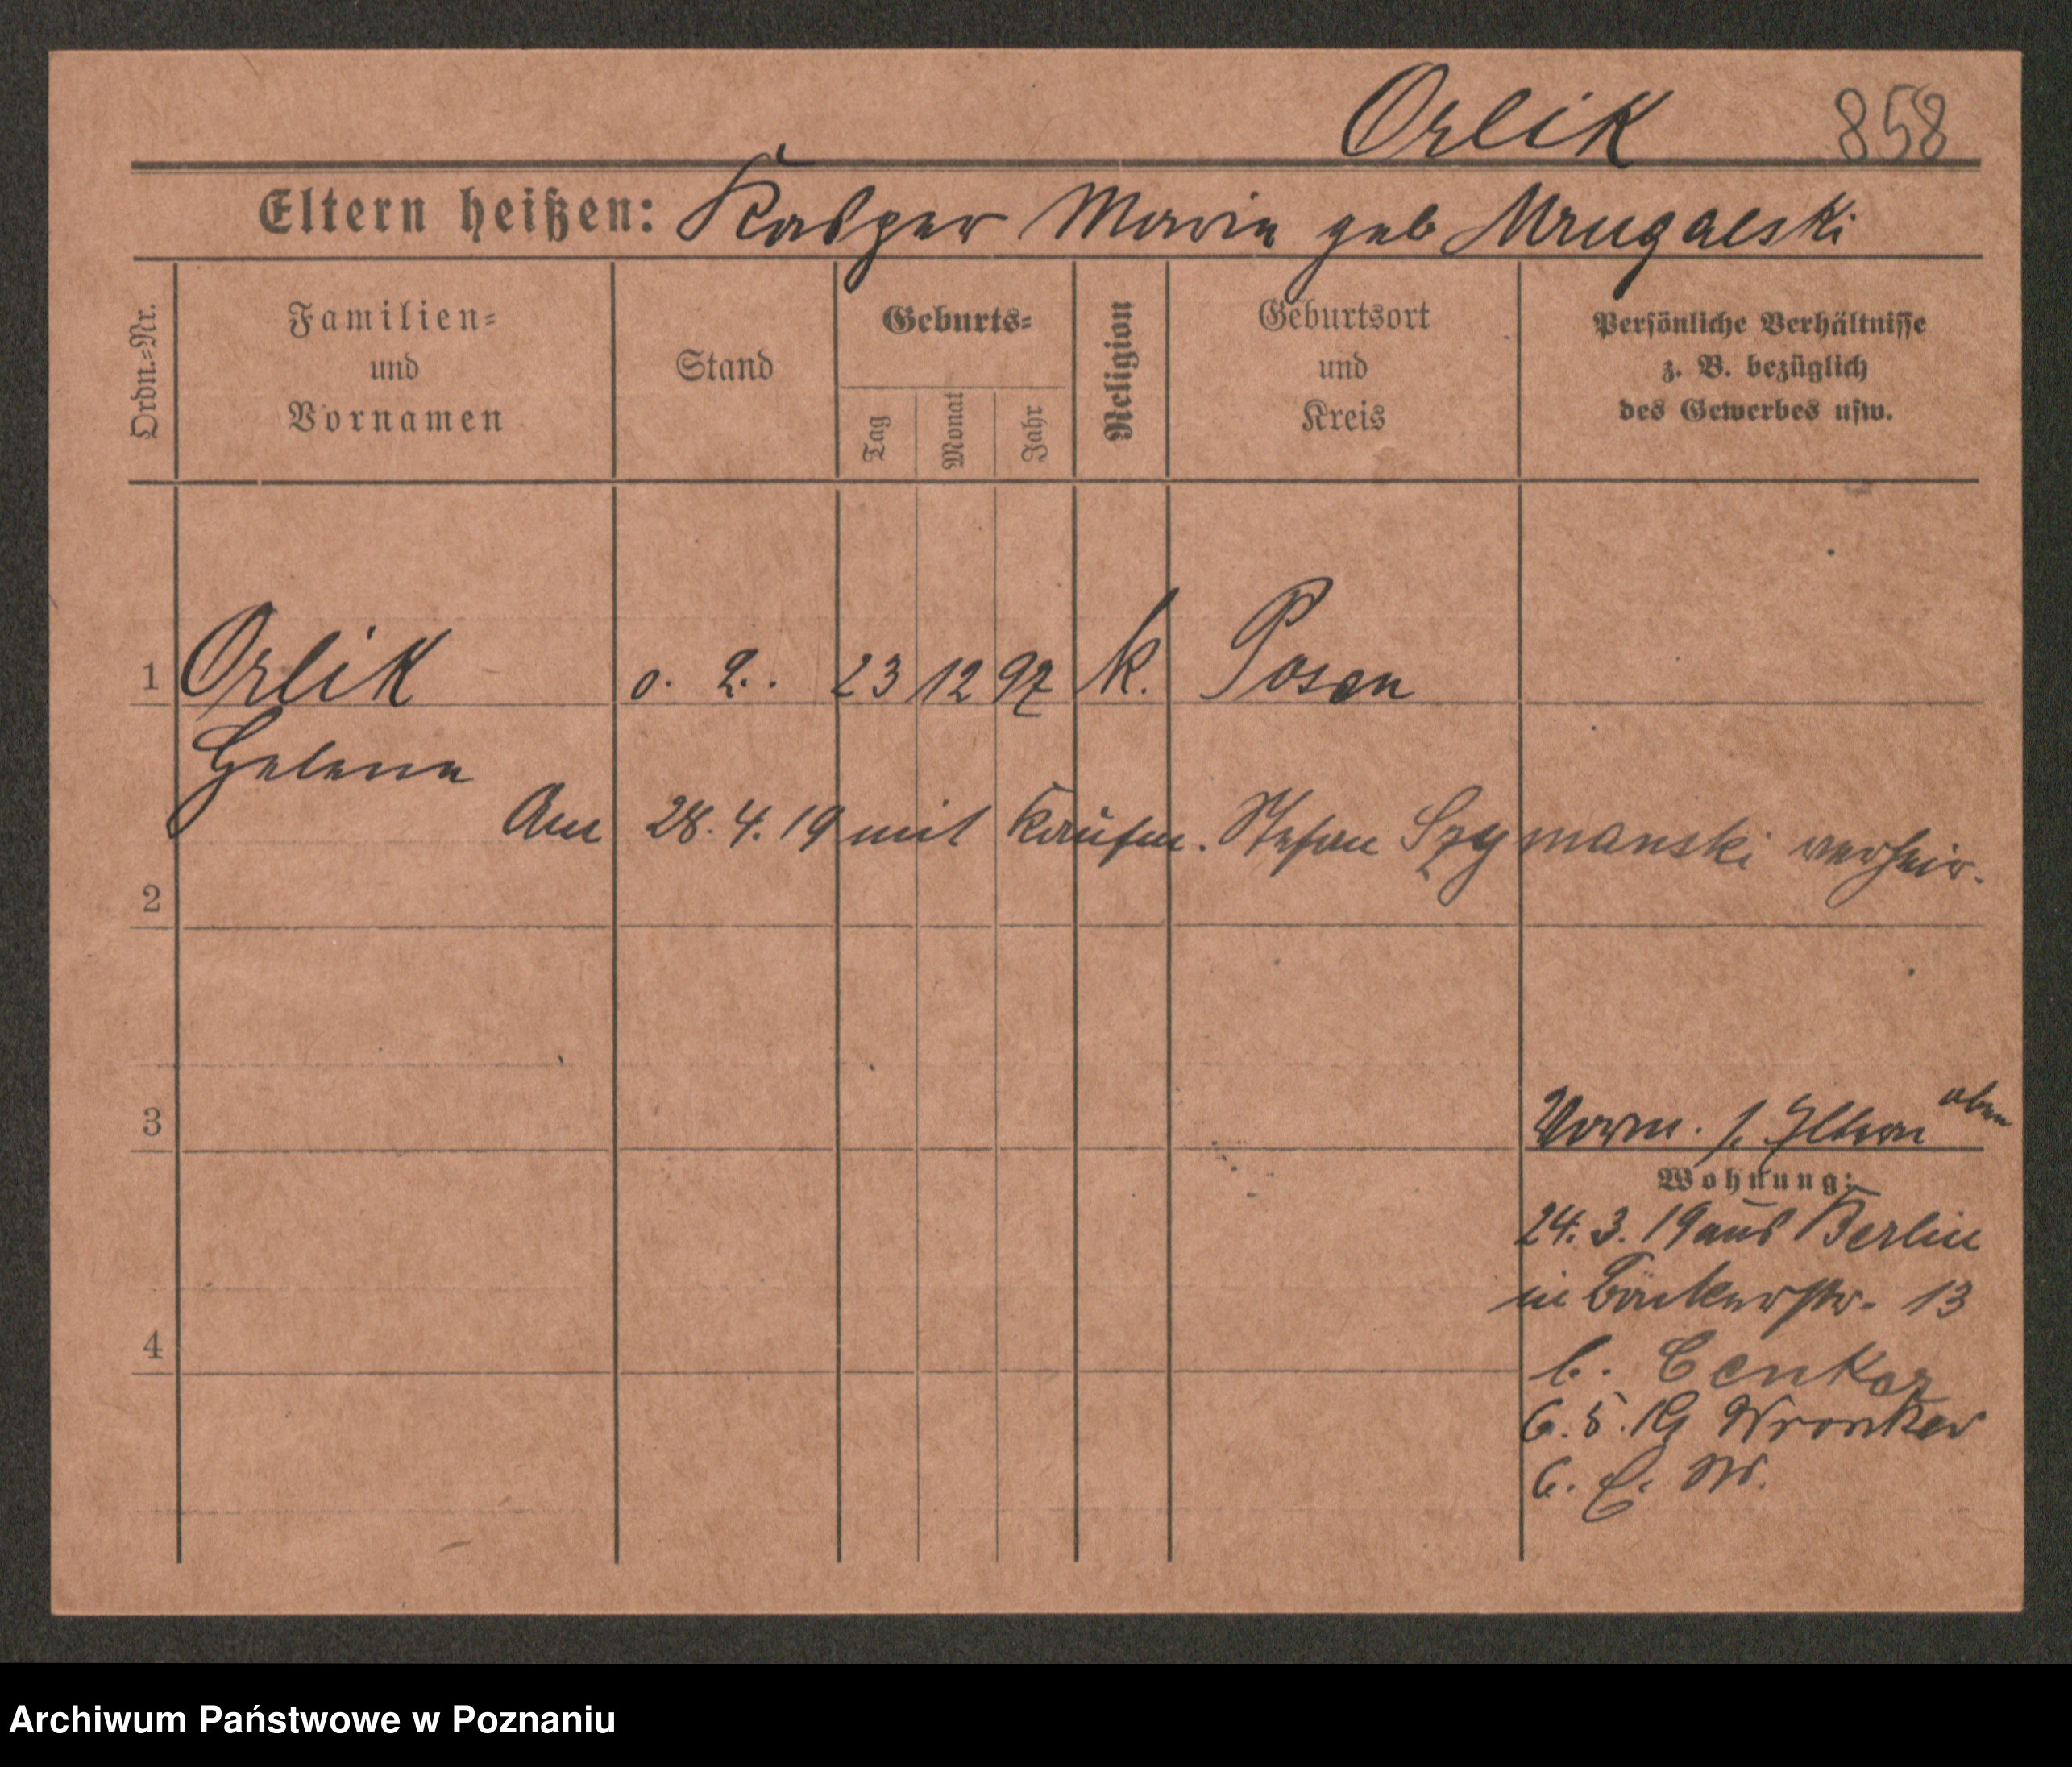 Orlik 858
Eltern heißen: Kasper Marie geb Mrugalski
Ordn.=Nr.
Familien=
und
Vornamen
Stand
Geburts=
Tag
Monat
Jahr
Religion
Geburtsort
und
Kreis
Persönliche Verhältnisse
z. B. bezüglich
des Gewerbes usw.
1 Orlik 23 12 97 k. Posen
Helene
Am 28. 4. 19 mit Kaufm. Stefan Szymanski verheir.
2
oben
3 Vorm. s. Eltern
Wohnung:
24. 3. 19 aus Berlin
in Bäckerstr. 13
4 b. Cenkar
6. 5. 19 Wronker